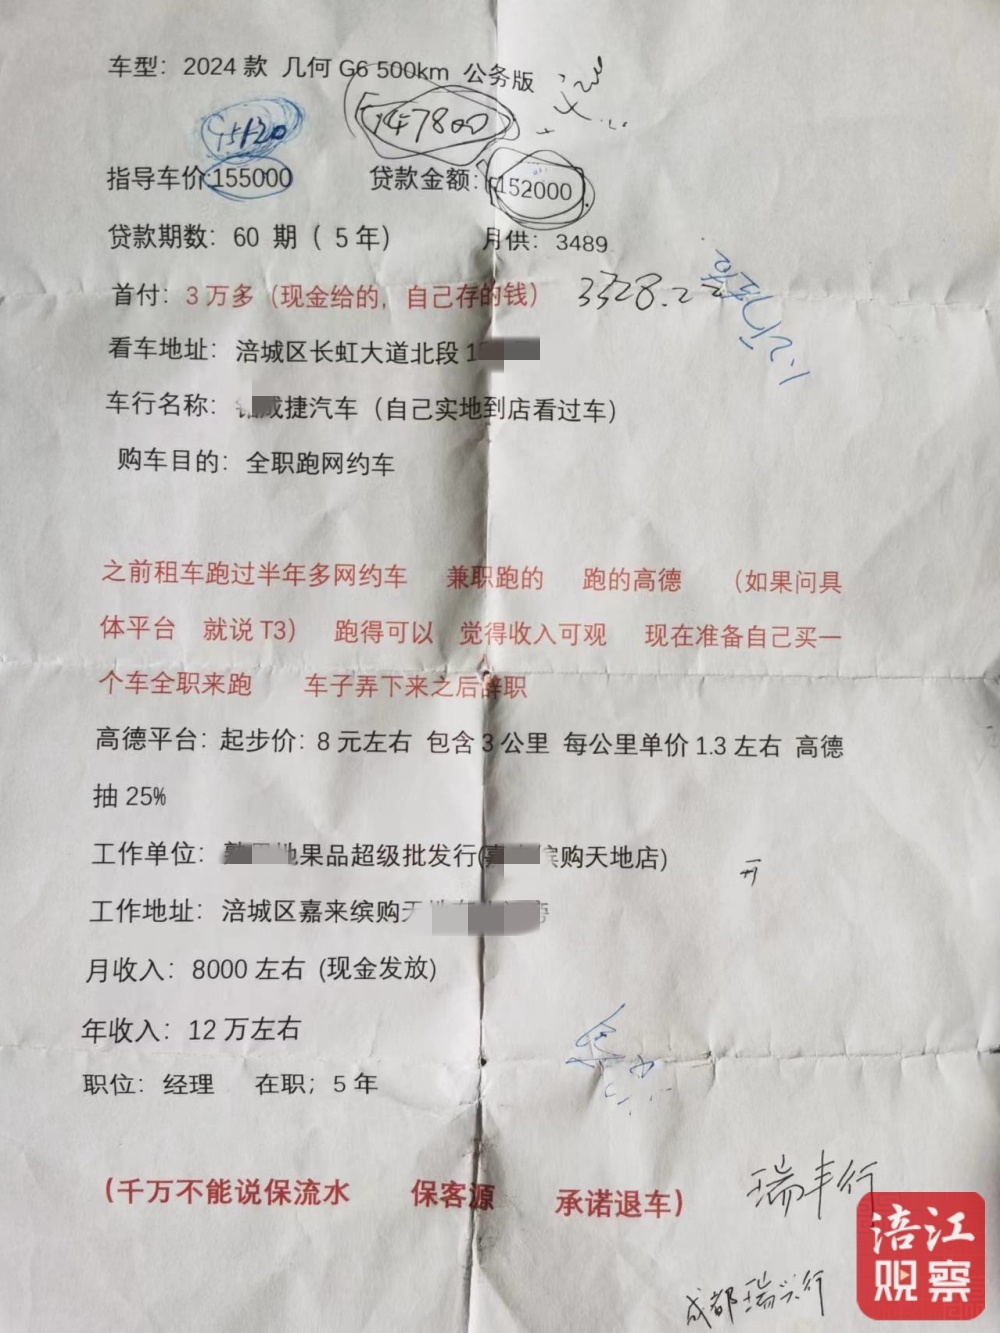 车型：2024 款 几何 G6 500km 公务版
147800
指导车价:155000 贷款金额：152000
贷款期数：60 期（ 5 年） 月供：3489
首付：3 万多（现金给的，自己存的钱） 3328.2
看车地址：涪城区长虹大道北段 1
车行名称：捷汽车（自己实地到店看过车）
购车目的：全职跑网约车
之前租车跑过半年多网约车 兼职跑的 跑的高德 （如果问具
体平台 就说 T3） 跑得可以 觉得收入可观 现在准备自己买一
个车全职来跑 车子弄下来之后辞职
高德平台：起步价：8 元左右 包含 3 公里 每公里单价 1.3 左右 高德
抽 25%
工作单位：果品超级批发行(缤购天地店)
工作地址：涪城区嘉来缤购天
月收入：8000 左右 (现金发放)
年收入：12 万左右
职位：经理 在职；5 年
（千万不能说保流水 保客源 承诺退车）
瑞丰行
成都瑞兴行
涪江
观察